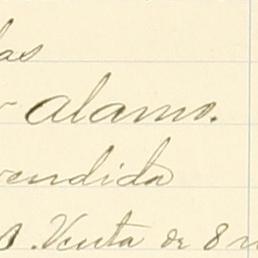 las
alamo.
vendida
Venta de 8